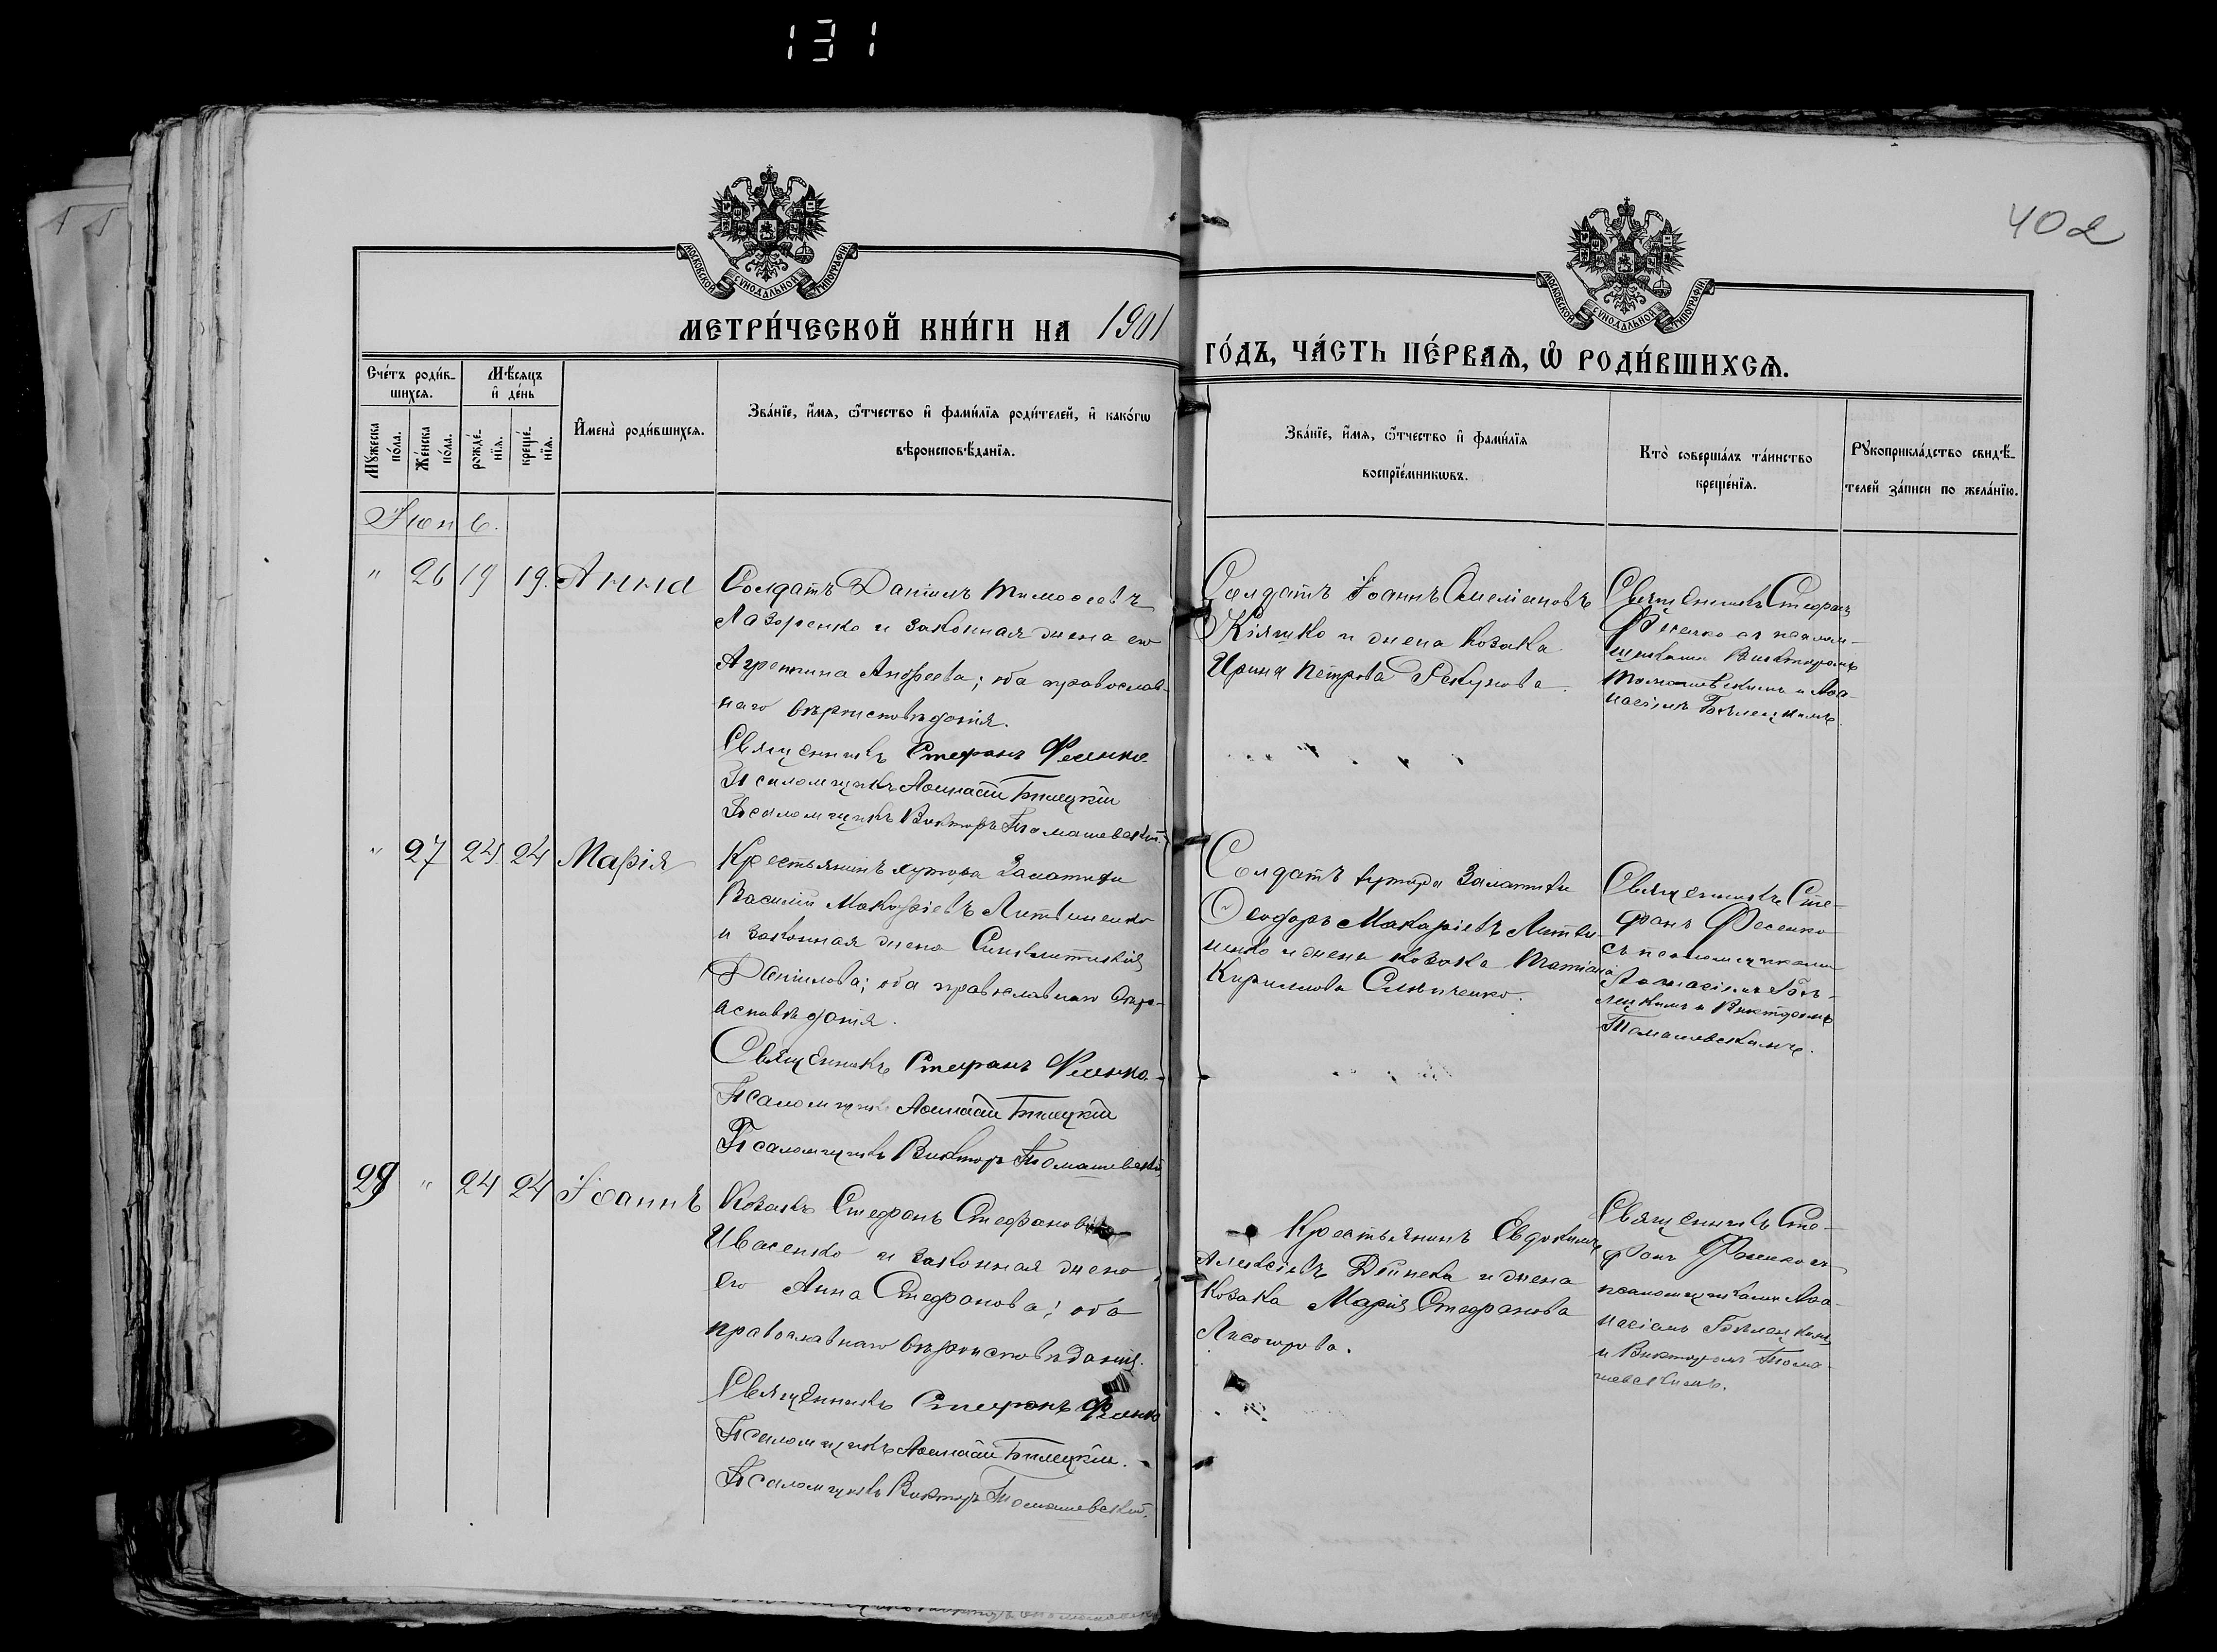 131
402
МОСКОВСКОЙ СѴНОДАЛЬНОЙ ТИПОГРАФІИ
МОСКОВСКОЙ СѴНОДАЛЬНОЙ ТИПОГРАФІИ
МЕТРИ́ЧЕСКОЙ КНИ́ГИ НА 1901
ГО́ДЪ, ЧА́СТЬ ПЕ́РВАѦ, Ѡ҆ РОДИ́ВШИХСѦ.
Сче́тъ роди́в-
шихсѧ.
Мѣ́сѧцъ
и҆ де́нь
Мꙋ́жеска
по́ла.
Же́нска
по́ла.
рожде́-
нїѧ.
креще́-
нїѧ.
И҆мена̀ роди́вшихсѧ.
Зва́нїе, и҆́мѧ, ѻ҆́тчество и҆ фами́лїѧ роди́телей, и҆ како́гѡ
вѣроисповѣ́данїѧ.
Зва́нїе, и҆́мѧ, ѻ҆́тчество и҆ фами́лїѧ
воспрїе́мникѡвъ.
Кто̀ соверша́лъ та́инство
креще́нїѧ.
Рꙋкоприкла́дство свидѣ́-
телей за́писи по жела́нїю.
Іюнь.
" 26 19 19. Анна
Солдатъ Даніилъ Тимоѳеевъ
Лазоренко и законная жена его
Агрепина Андреева; оба православ-
наго вѣроисповѣданія.
Священникъ Стефанъ Фесенко
Псаломщикъ Аѳанасій Билецкій
Псаломщикъ Викторъ Томашевскій.
Солдатъ Іоаннъ Омеліановъ
Кіяшко и жена козака
Ирина Петрова Рекунова.
Священникъ Стефанъ
Фесенко съ псалом-
щиками Викторомъ
Томашевскимъ и Аѳа-
насіемъ Бѣлецкимъ.
" 27 24 24 Марія
Крестьянинъ хутора
Василій Макаріевъ Литвиненко
и законная жена Синклитикія
Даніилова; оба православнаго вѣро-
исповѣданія.
Священникъ Стефанъ Фесенко.
Псаломщикъ Аѳанасій Билецкій
Псаломщикъ Викторъ Томашевскій
Солдатъ хутора
Ѳеодоръ Макаріевъ Литви-
ненко и жена козака Татіана
Кириллова
Священникъ Сте-
фанъ Фесенко
съ псаломщиками
Аѳанасіемъ Бѣ-
лецкимъ и Викторомъ
Томашевскимъ.
28 " 24 24 Іоаннъ
Козакъ Стефанъ Стефановъ
Ивасенко и законная жена
его Анна Стефанова; оба
православнаго вѣроисповѣданія.
Священникъ Стефанъ Фесенко
Псаломщикъ Аѳанасій Билецкій.
Псаломщикъ Викторъ Томашевскій.
Крестьянинъ Евдокимъ
Алексіевъ Дейнека и жена
козака Марія Стефанова
Священникъ Сте-
фанъ Фесенко съ
псаломщиками Аѳа-
насіемъ Бѣлецкимъ
и Викторомъ Тома-
шевскимъ.